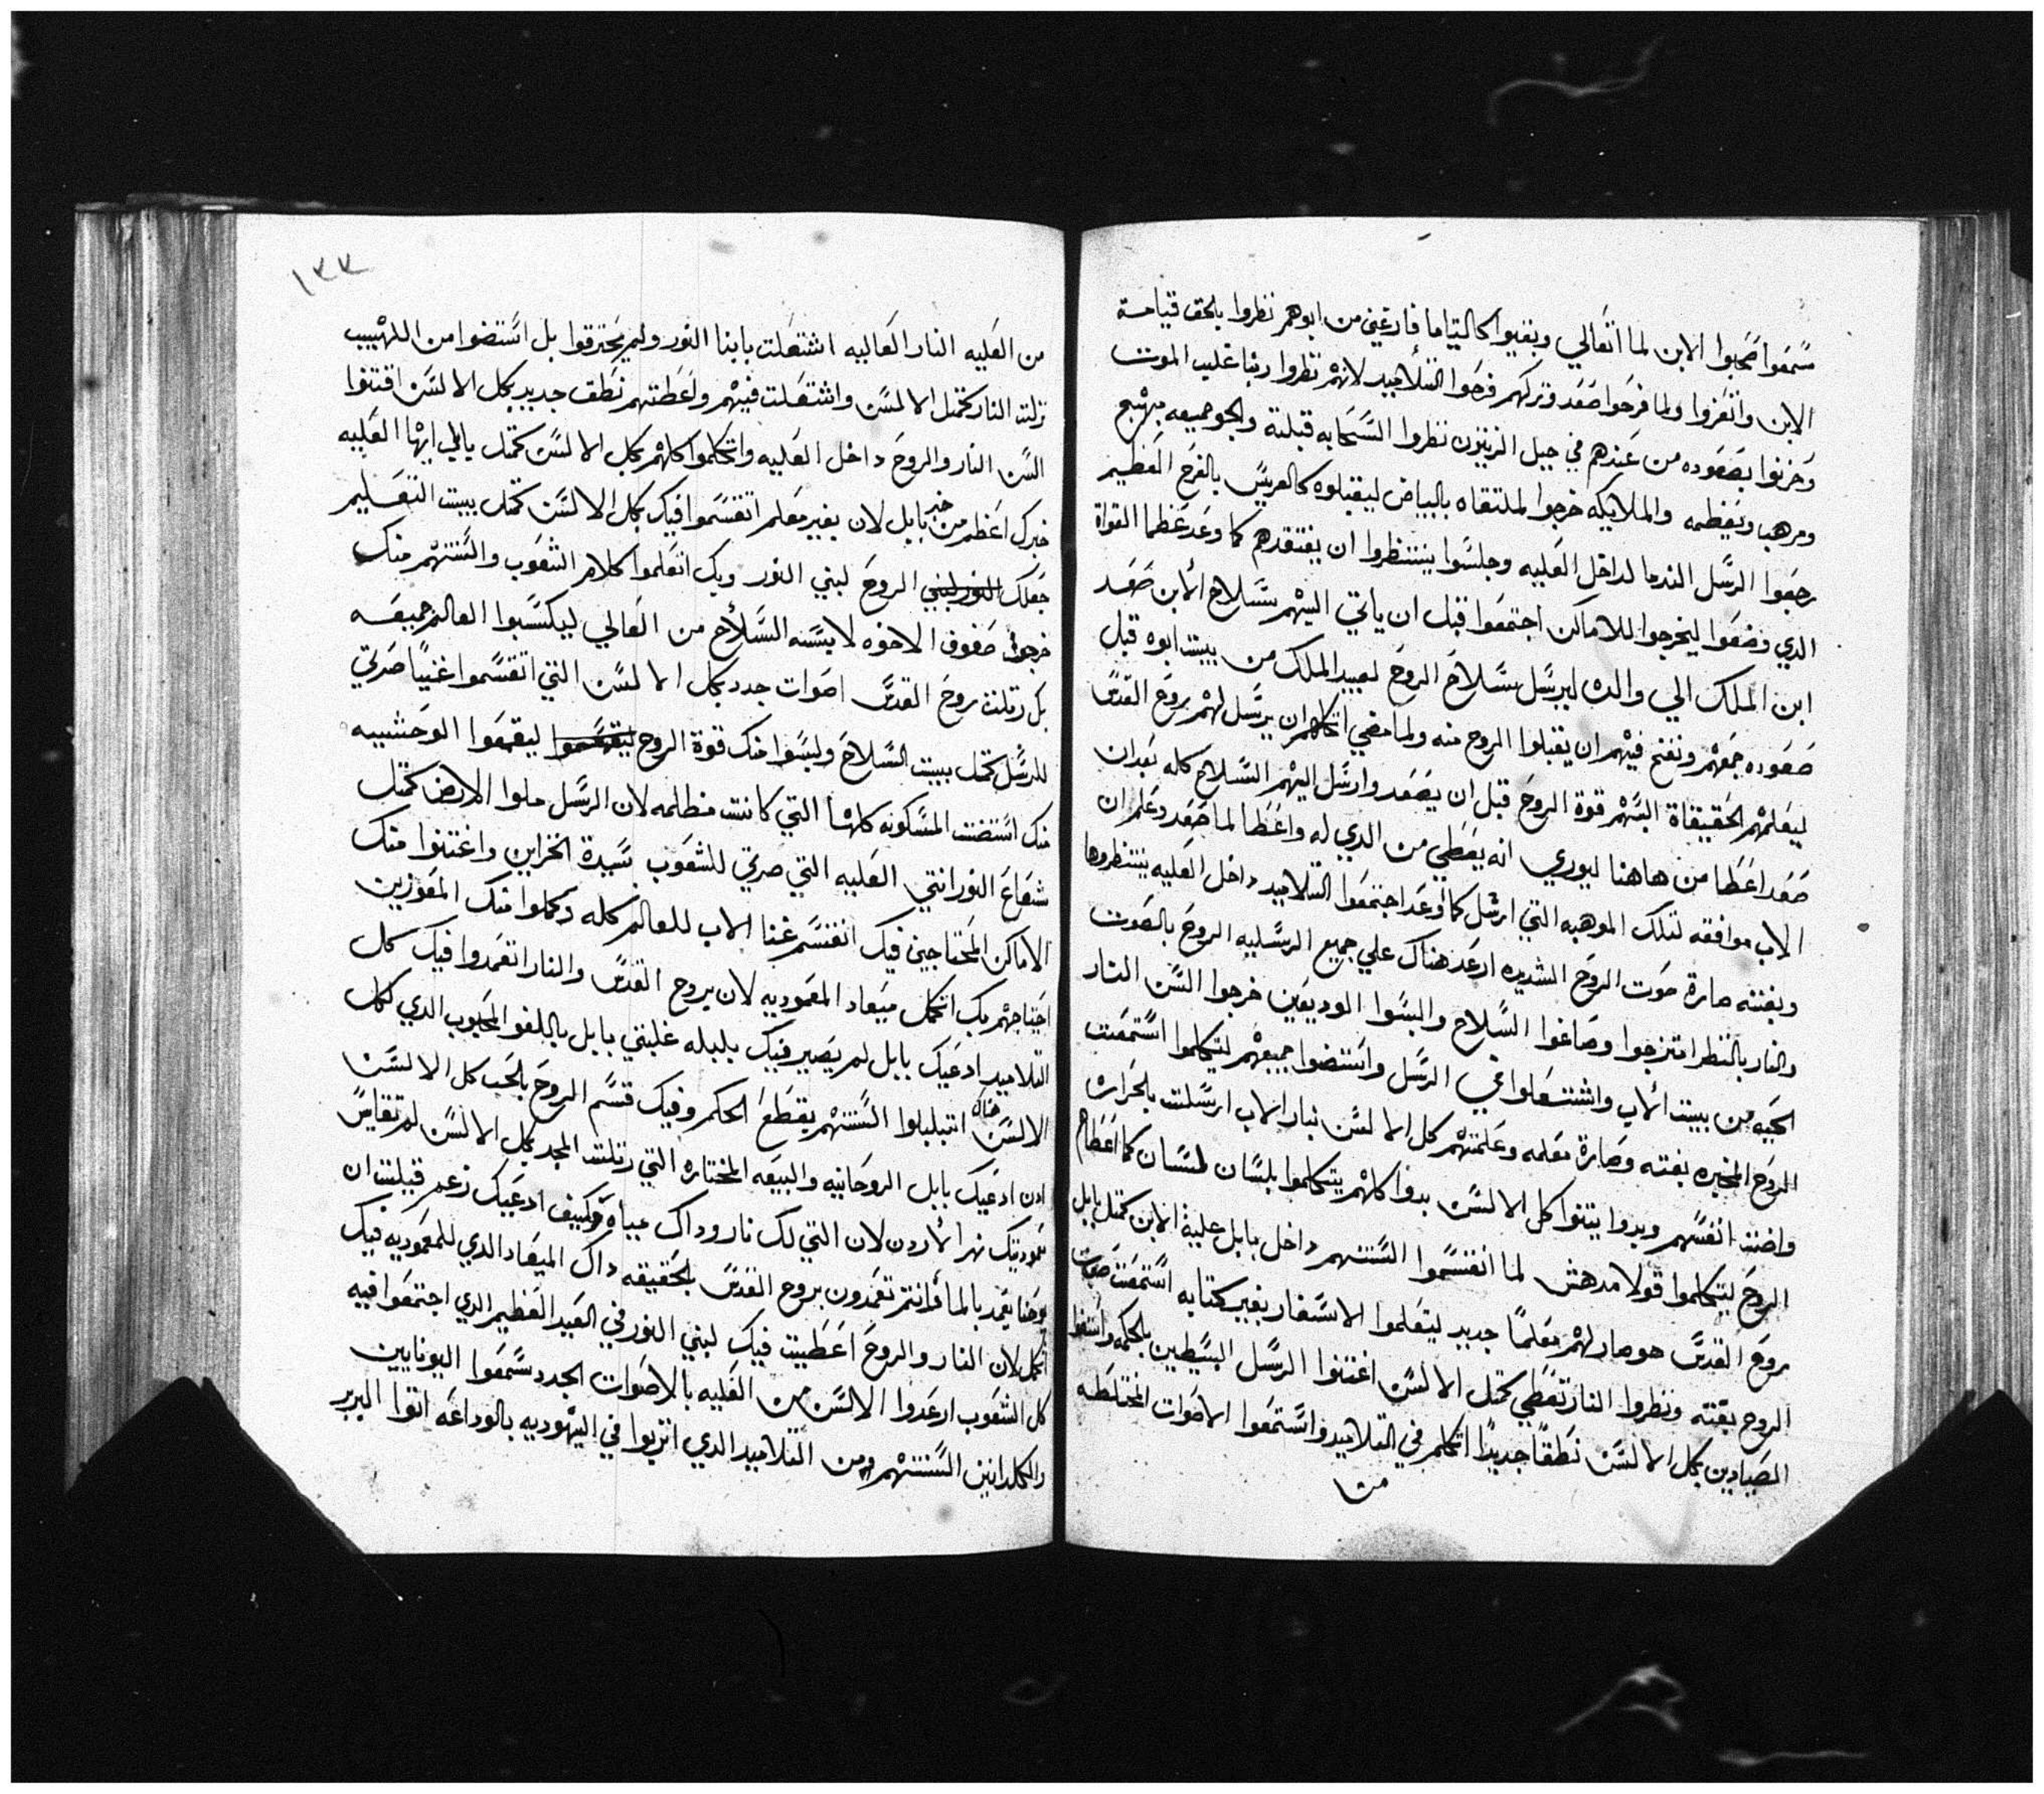 سمعوا اصحبوا الابن لما اتعالي وبقيوا كاليتاما فارغين من ابوهم نظروا بالحق قيامة
الابن وانعزوا ولما فرحوا صعد وتركهم فرحوا التلاميد لانهم نظروا ربنا غلب الموت
وحزنوا بصعوده من عندهم في جبل الزيتون نظروا السحابه قبلته والجو جميعه مبهج
ومرهب وبعظمه والملايكه خرجوا لملتقاه بالبياض ليقبلوه كالعريس بالفرح العظيم
رجعوا الرسل الندما لداخل العليه وجلسوا ينتظروا ان يفتقدهم كما وعد عظما القواة
الدي وضعوا ليخرجوا للاماكن اجتمعوا قبل ان ياتي اليهم سلاح الابن صعد
ابن الملك الي والده ليرسل سلاح الروح لعبيد الملك من بيت ابوه قبل
صعوده جمعهم ونفخ فيهم ان يقبلوا الروح منه ولما مضي اتكلهم ان يرسل لهم بروح القدس
ليعلمهم الحقيقاة البسهم قوة الروح قبل ان يصعد وارسل اليهم السلاح كله بعد ان
صعد اعطا من هاهنا ليوري انه يعطي من الدي له واعطا لما صعد وعلم ان
الاب موافقه لتلك الموهبه التي ارسل كما وعد اجتمعوا التلاميد داخل العليه ينتظروها
وبغتته صارة صوت الروح الشديده ارعد هناك علي جميع الرسليه الروح بالصوت
والنار بالنظر امتزجوا وصاغوا السلاح والبسوا الوديعين خرجوا السن النار
الحيه من بيت الاب واشتعلوا في الرسل واستضوا جميعهم ليتكلموا استمعت
الروح المخبره بغتته وصارة معلمه وعلمتهم كل الالسن بنار الاب ارسلت بالحراره
واضت انفسهم وبدوا يتنوا كل الالسن بدوا كلهم يتكلموا بلسان لسان كما اعطاهم
الروح ليتكلموا قولا مدهش لما انقسموا السنتهم داخل بابل علية الابن كمتل بابل
روح القدس هو صار لهم معلما جديد ليتعلموا الاسفار بغير كتابه استمعت صوت
الروح بغتته ونظروا النار تعطي كمتل الالسن اغتنوا الرسل البسيطين بالحكمه واستضوا
الصيادين بكل الالسن نطقا جديدا اتكلم في التلاميد واستمعوا الاصوات المختلطه
من
١٣٣
من العليه النار العاليه اشتعلت بابنا النور ولم يحترقوا بل استضوا من اللهيب
نزلت النار كمتل الالسن واشتعلت فيهم واعطتهم نطق جديد بكل الالسن اقتنوا
السن النار والروح داخل العليه واتكلموا كلهم بكل الالسن كمتل بابل ايها العليه
خبرك اعظم من خبر بابل لان بغير معلم اتقسموا فيك بكل الالسن كمتل بيت التعليم
جعلك النور لبني الروح لبني النور وبك اتعلموا كلام الشعوب والسنتهم منك
خرجوا صفوف الاخوه لابسنه السلاح من العالي ليكسبوا العالم جميعه
بك رتلت روح القدس اصوات جدد بكل الالسن التي اتقسموا غنيا صرتي
للرسل كمتل بيت السلاح ولبسوا منك قوة الروح ليقمعوا ليقمعوا الوحشيه
منك استضت المسكونه كلها التي كانت مظلمه لان الرسل ملوا الارض كمتل
شعاع النور انتي العليه التي صرتي للشعوب سيدة الخزاين واغتنوا منك
الاماكن المحتاجين فيك انقسم غنا الاب للعالم كله وكملوا منك المعوزين
احتياجهم بك اتكمل ميعاد المعموديه لان بروح القدس والنار اتعمدوا فيك كل
التلاميد ادعيك بابل لم يصير فيك بلبله غلبتي بابل باللغو المحبوب الدي لكل
الالسن هناك اتبلبلوا السنتهم بقطع الحكم وفيك قسم الروح بالحب كل الالسن
ادن ادعيك بابل الروحانيه والبيعه المختاره التي رتلت المجد بكل الالسن لم تقاس
عموديتك نهر الاردن لان التي لك نار وداك مياه وكيف ادعيك زعم قبلت ان
يوحنا يعمد بالما فانتم تعمدون بروح القدس بالحقيقه داك الميعاد الدي للمعموديه فيك
اكمل لان النار والروح اعطيت فيك لبني النور في العيد العظيم الدي اجتمعوا فيه
كل الشعوب ارعدوا الالسن من العليه بالاصوات الجدد سمعوا اليونايين
والكلدانين السنتهم ومن التلاميد الدي اتربوا في اليهوديه بالوداعه اتوا البربر